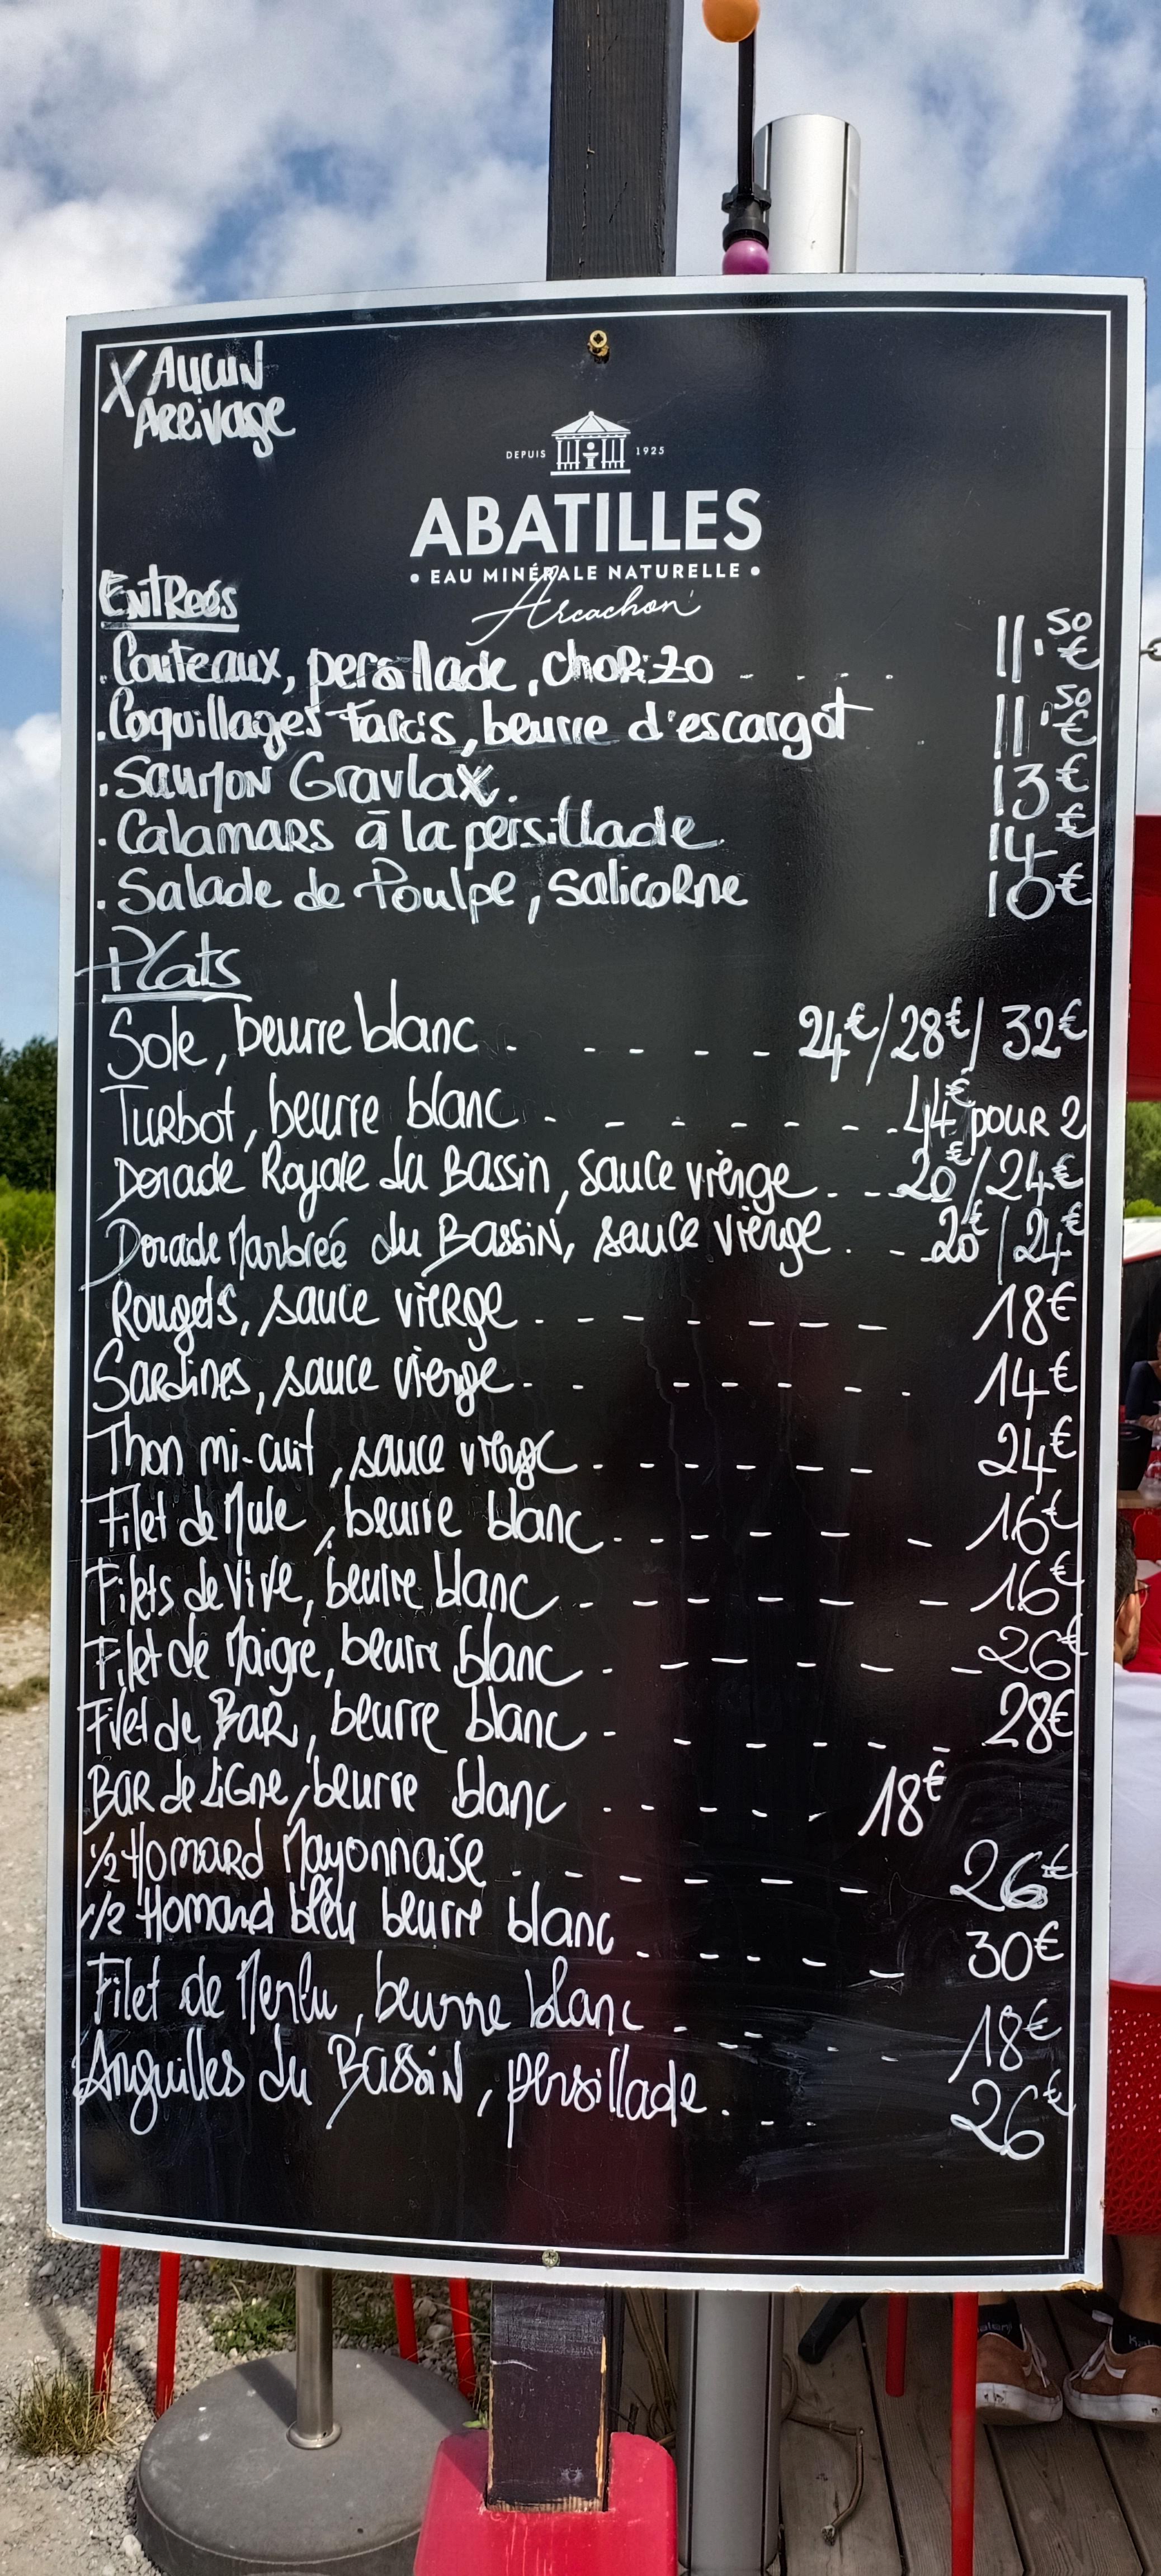 X AUCUN
ARRIVAGE
DEPUIS 1925
ABATILLES
• EAU MINÉRALE NATURELLE •
Arcachon
Entrées
. Couteaux, persillade, chorizo - . - . . 11.50 €
. Coquillages farcis, beurre d'escargot . 11.50 €
. Saumon Gravlax. 13 €
. Calamars à la persillade 14 €
. Salade de Poulpe, salicorne 10 €
Plats
Sole, beurre blanc . - - - - 24€/28€/32€
Turbot, beurre blanc - - - - - - - . 44€ pour 2
Dorade Royale du Bassin, sauce vierge . - - 20€/24€
Dorade Marbrée du Bassin, sauce vierge . - 20€/24€
Rougets, sauce vierge . - - - - - - 18€
Sardines, sauce vierge - - - - - - - . 14€
Thon mi-cuit, sauce vierge . - - - - - - 24€
Filet de Mule, beurre blanc . - - - - - - 16€
Filets de Vive, beurre blanc - - - - - - - 16€
Filet de Maigre, beurre blanc . - - - - - - 26€
Filet de Bar, beurre blanc - - - - - - - 28€
Bar de Ligne, beurre blanc . - - - - 18€
1/2 Homard Mayonnaise . - - - - - - 26€
1/2 Homard bleu beurre blanc . - - - - 30€
Filet de Merlu, beurre blanc . - - - - 18€
Anguilles du Bassin, persillade . - - - 26€